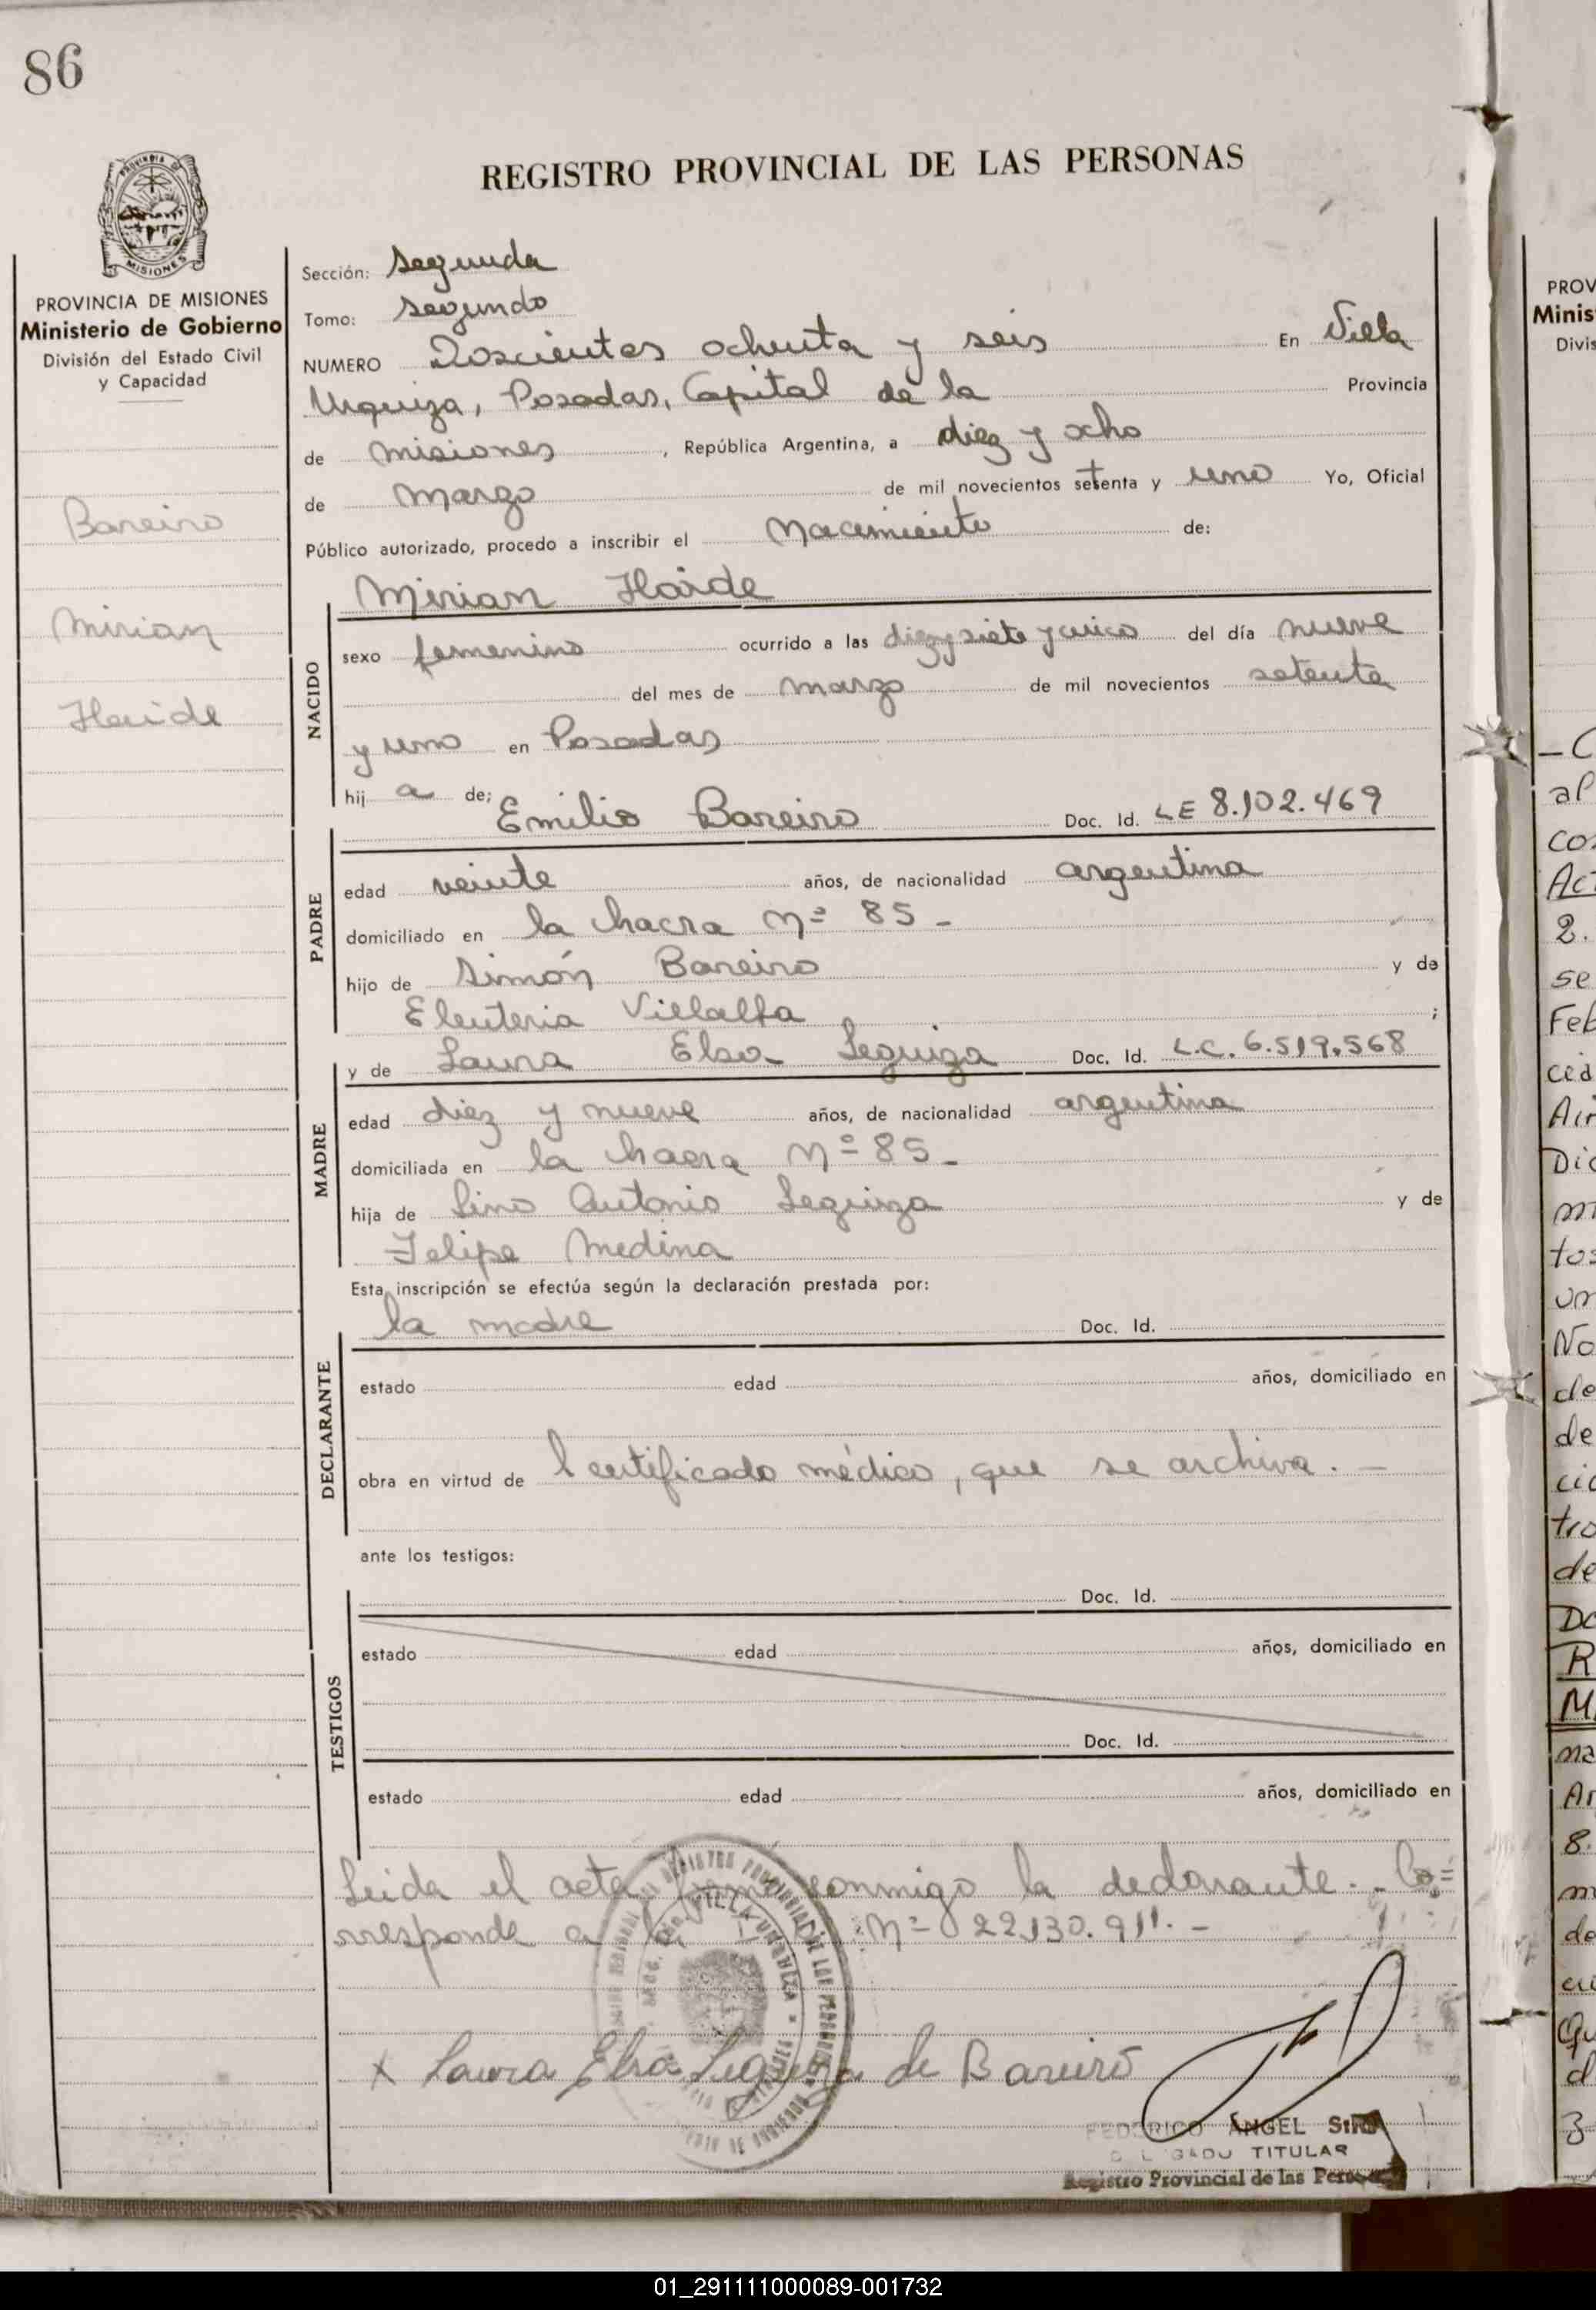 86
REGISTRO PROVINCIAL DE LAS PERSONAS
MISIONES
PROVINCIA DE MISIONES
Ministerio de Gobierno
División del Estado Civil
y Capacidad
Bareiro
Mirian
Haide
Sección: Segunda
Tomo: segundo
NUMERO Doscientos ochenta y seis En Villa
Urquiza, Posadas, Capital de la Provincia
de misiones, República Argentina, a diez y ocho
de marzo de mil novecientos setenta y uno Yo, Oficial
Público autorizado, procedo a inscribir el nacimiento de:
Mirian Haide
NACIDO
sexo femenino ocurrido a las diez y siete y cinco del día nueve
del mes de marzo de mil novecientos setenta
y uno en Posadas
hij a de; Emilio Bareiro Doc. Id. LE 8.102.469
PADRE
edad veinte años, de nacionalidad argentina
domiciliado en la chacra Nº 85 -
hijo de Simón Bareiro y de
Eleuteria Villalba ;
y de Laura Elsa Leguiza Doc. Id. L.C. 6.519.568
MADRE
edad diez y nueve años, de nacionalidad argentina
domiciliada en la chacra Nº 85 -
hija de Lino Antonio Leguiza y de
Felipa Medina
Esta inscripción se efectúa según la declaración prestada por:
la madre Doc. Id.
DECLARANTE
estado edad años, domiciliado en
obra en virtud de l certificado médico, que se archiva. -
ante los testigos:
Doc. Id.
TESTIGOS
estado edad años, domiciliado en
Doc. Id.
estado edad años, domiciliado en
Leida el acta firma conmigo la declarante. - Co=
rresponde a Nº 22.130.911. -
VILLA URQUIZA
x Laura Elsa Leguiza de Bareiro
FEDERICO ANGEL
TITULAR
Registro Provincial de las
PROV
Minis
Divis
01_291111000089-001732